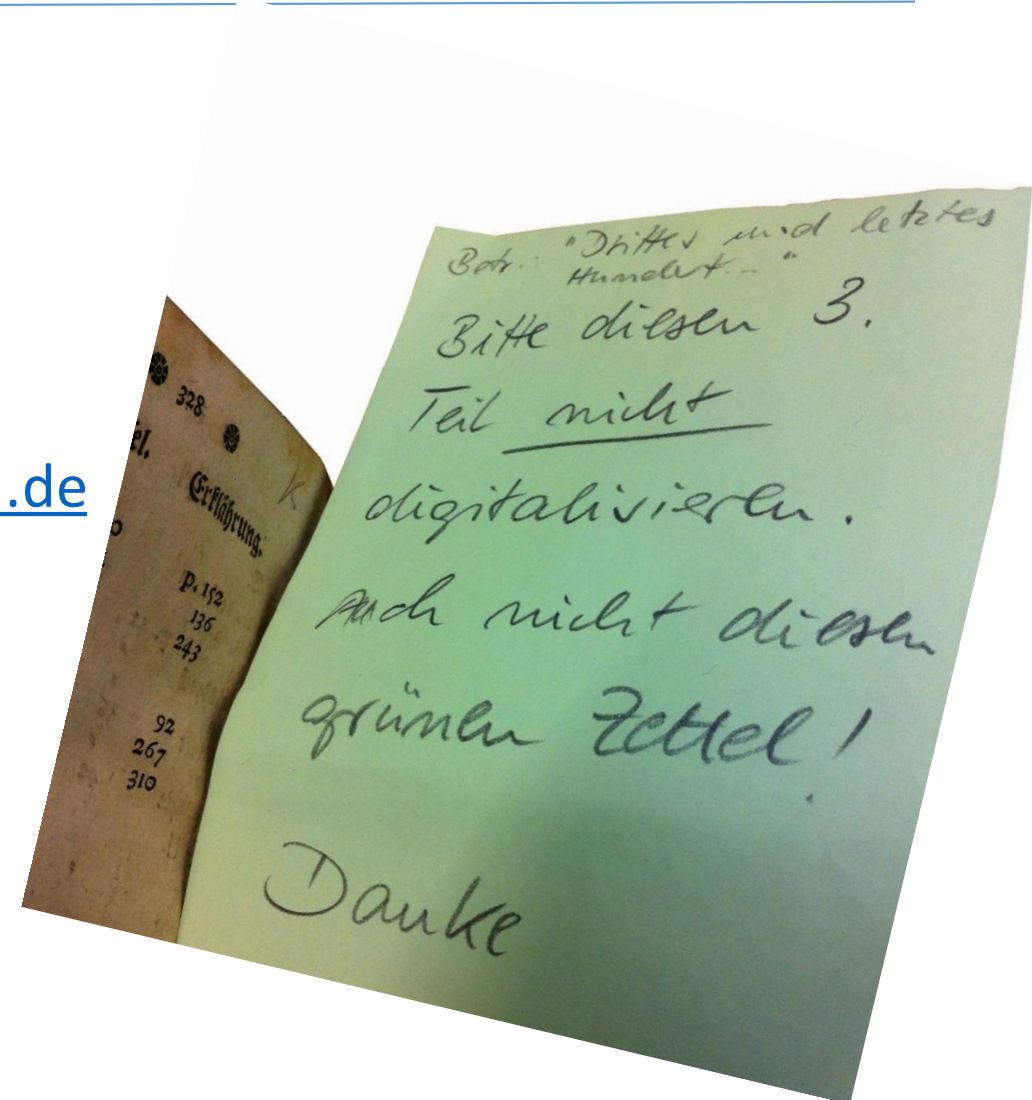 .de
328
el.
Erklährung.
p. 152
136
243
92
267
310
K
Betr.: "Drittes und letztes
Hundert..."
Bitte diesen 3.
Teil nicht
digitalisieren.
Auch nicht diesen
grünen Zettel!
Danke